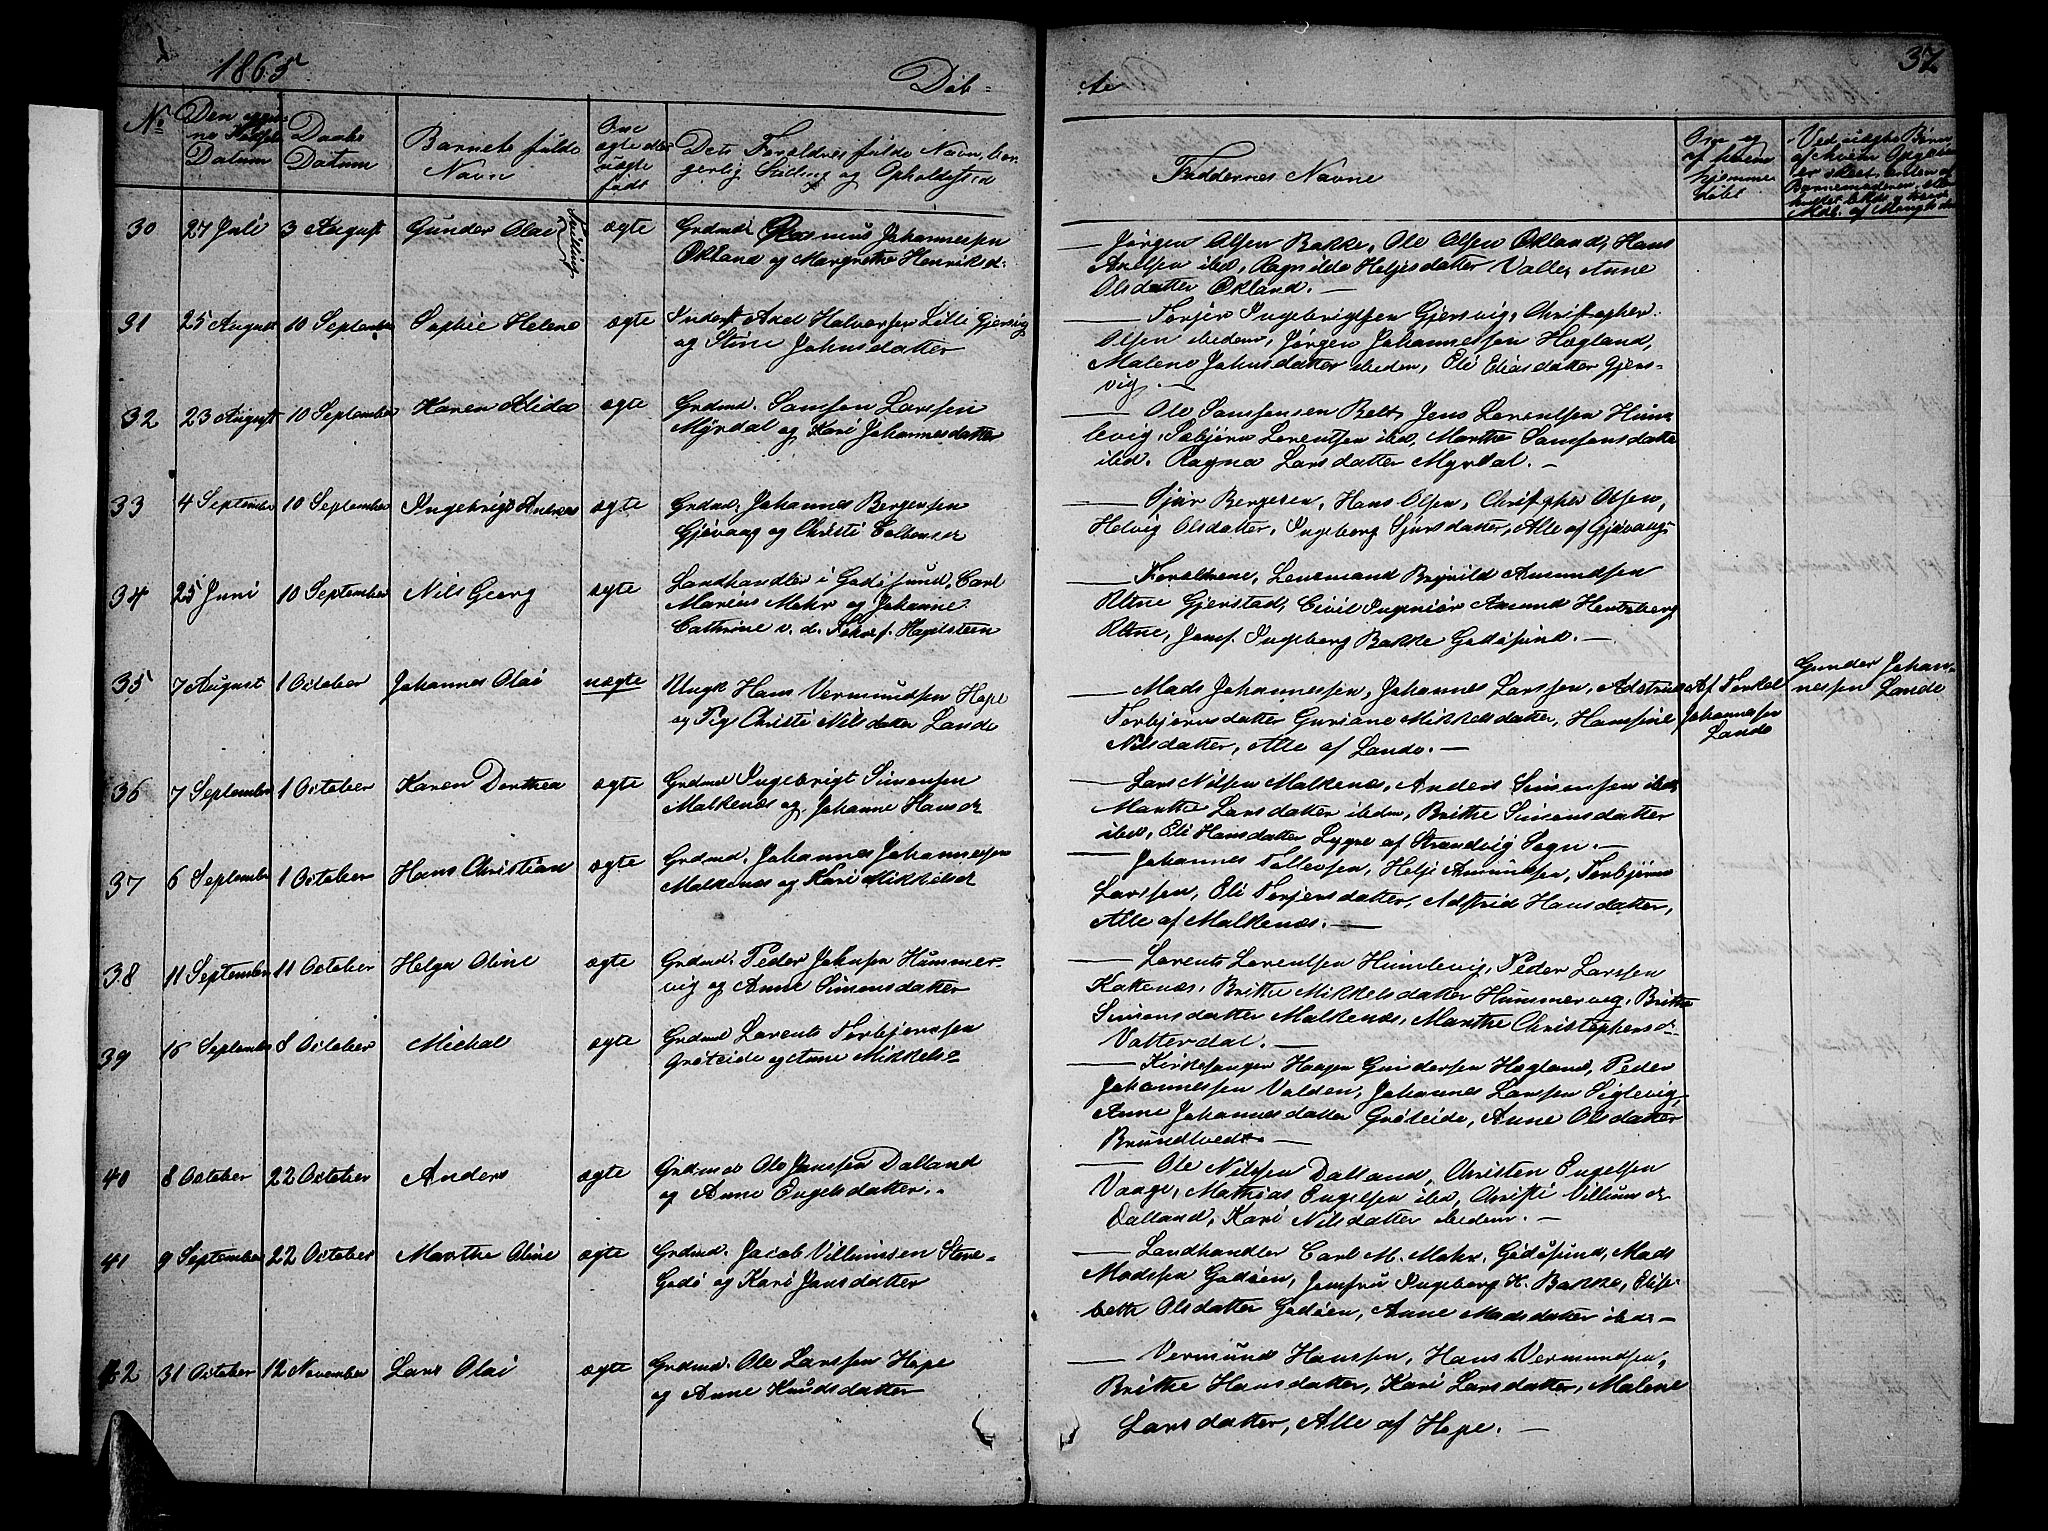 1865
Døb-
te
37
No
Datum
Daabs
Datum
Barnets fulde
Navn
Om
ægte eller
uægte
født
Dets Forældres fulde Navn, bor-
gerlig Stilling og Opholdssted
Faddernes Navne
Om og
af hvem
hjemme
døbt
30
27 Juli
3 August
Gunder Olai
Tvilling
ægte
Grdmd. Rasmus Johannessen
Økland og Margrethe Henriksd.
Jørgen Olsen Bakke, Ole Olsen Økland, Hans
Axelsen ibid, Ragnilde Heljesdatter Valle, Anne
Olsdatter Økland.
31
25 August
10 September
Sophie Helene
ægte
Inderst Axel Halvorsen Lille Gjersvig
og Stine Johnsdatter
Torjer Ingebrigtsen Gjersvig, Christopher
Olsen ibidem, Jørgen Johannessen Høgland,
Malene Johnsdatter ibidem, Eli Eliasdatter Gjers-
vig.
32
23 August
10 September
Karen Alida
ægte
Grdmd. Samson Larssen
Myrdal og Kari Johannesdatter
Ole Samsonsen Belt, Jens Lorentsen Hum-
levig, Torbjørn Lorentsen ibid, Marthe Samsonsdatter
ibid. Ragna Larsdatter Myrdal.
33
4 September
10 September
Ingebrigt Andreas
ægte
Grdmd. Johannes Bergesen
Gjøvaag og Christi
Sjur Bergesen, Hans Olsen, Christopher Olsen,
Helvig Olsdatter, Ingeborg Sjursdatter, Alle af Gjøvaag-
34
25 Juni
10 September
Nils Georg
ægte
Landhandler i Godøsund, Carl
Marius Mohr og Johanne
Cathrine v. d. f. Hagelsteen
Forældrene, Lensmand Brynild Amundsen
Gjerstad, Civil Ingeniør Amund Hertzberg
Jomf. Ingeborg Bakke Godøsund.
35
7 August
1 October
Johannes Olai
uægte
Ungk Hans Vermundsen Hope
og Pig Christi Nilsdatter Lande
Mads Johannessen, Johannes Larssen, Adstrine
Torbjørnsdatter Guriane Mikkelsdatter, Hansine
Nilsdatter, Alle af Lande.
Af Torkel
Johannessen
Lande
Gunder Johan-
nessen Lande
36
7 September
1 October
Karen Dorthea
ægte
Grdmd Ingebrigt Simensen
Malkenæs og Johanne Hansdr
Lars Nilsen Malkenæs, Anders Simensen ibid
Marthe Larsdatter ibidem, Brithe Simonsdatter
ibid, Eli Hansdatter Lygre af Strandvig Sogn.
37
6 September
1 October
Hans Christian
ægte
Grdmd. Johannes Johannessen
Malkenæs og Kari Mikkelsdr
Johannes Tollevsen, Helje Amundsen, Torbjørn
Larssen, Eli Torjersdatter, Adstrid Hansdatter,
Alle af Malkenæs.
38
11 September
11 October
Helga Oline
ægte
Grdmd. Peder Johnsen Hummer-
vig og Anne Simensdatter
Lorents Lorentsen Humlevig, Peder Larssen
Kalvenæs, Brithe Mikkelsdatter Hummervig, Brithe
Simonsdatter Malkenæs, Marthe Christophersd-
Vatterdal.
39
16 September
8 October
Michal
ægte
Grdmd Lorents Torbjørnsen
Grøteide og Anne Mikkelsdr
Kirkesanger Haagen Gundersen Høgland, Peder
Johannessen Valden, Johannes Larssen Siglevig,
Anne Johannesdatter Grøteide, Anne Olsdatter
Brundtvedt.
40
8 October
22 October
Anders
ægte
Grdmd Ole Janssen Dalland
og Anne Engelsdatter.
Ole Nilssen Dalland, Christen Engelsen
Vaage, Mathias Engelsen ibid, Christi Villumsdr
Dalland, Kari Nilsdatter ibidem.
41
9 September
22 October
Marthe Oline
ægte
Grdmd. Jacob Villumsen Store-
Godø og Kari Jansdatter
Landhandler Carl M. Mohr, Godøsund, Mads
Madsen Godøen, Jomfru Ingeborg K. Bakke, Elisa-
beth Olsdatter Godøen, Anne Madsdatter ibid-
42
31 October
12 November
Lars Olai
ægte
Grdmd. Ole Larssen Hope
og Anne Knudsdatter
Vermund Hanssen, Hans Vermundsen,
Brithe Hansdatter, Kari Larsdatter, Malene
Larsdatter, Alle af Hope.